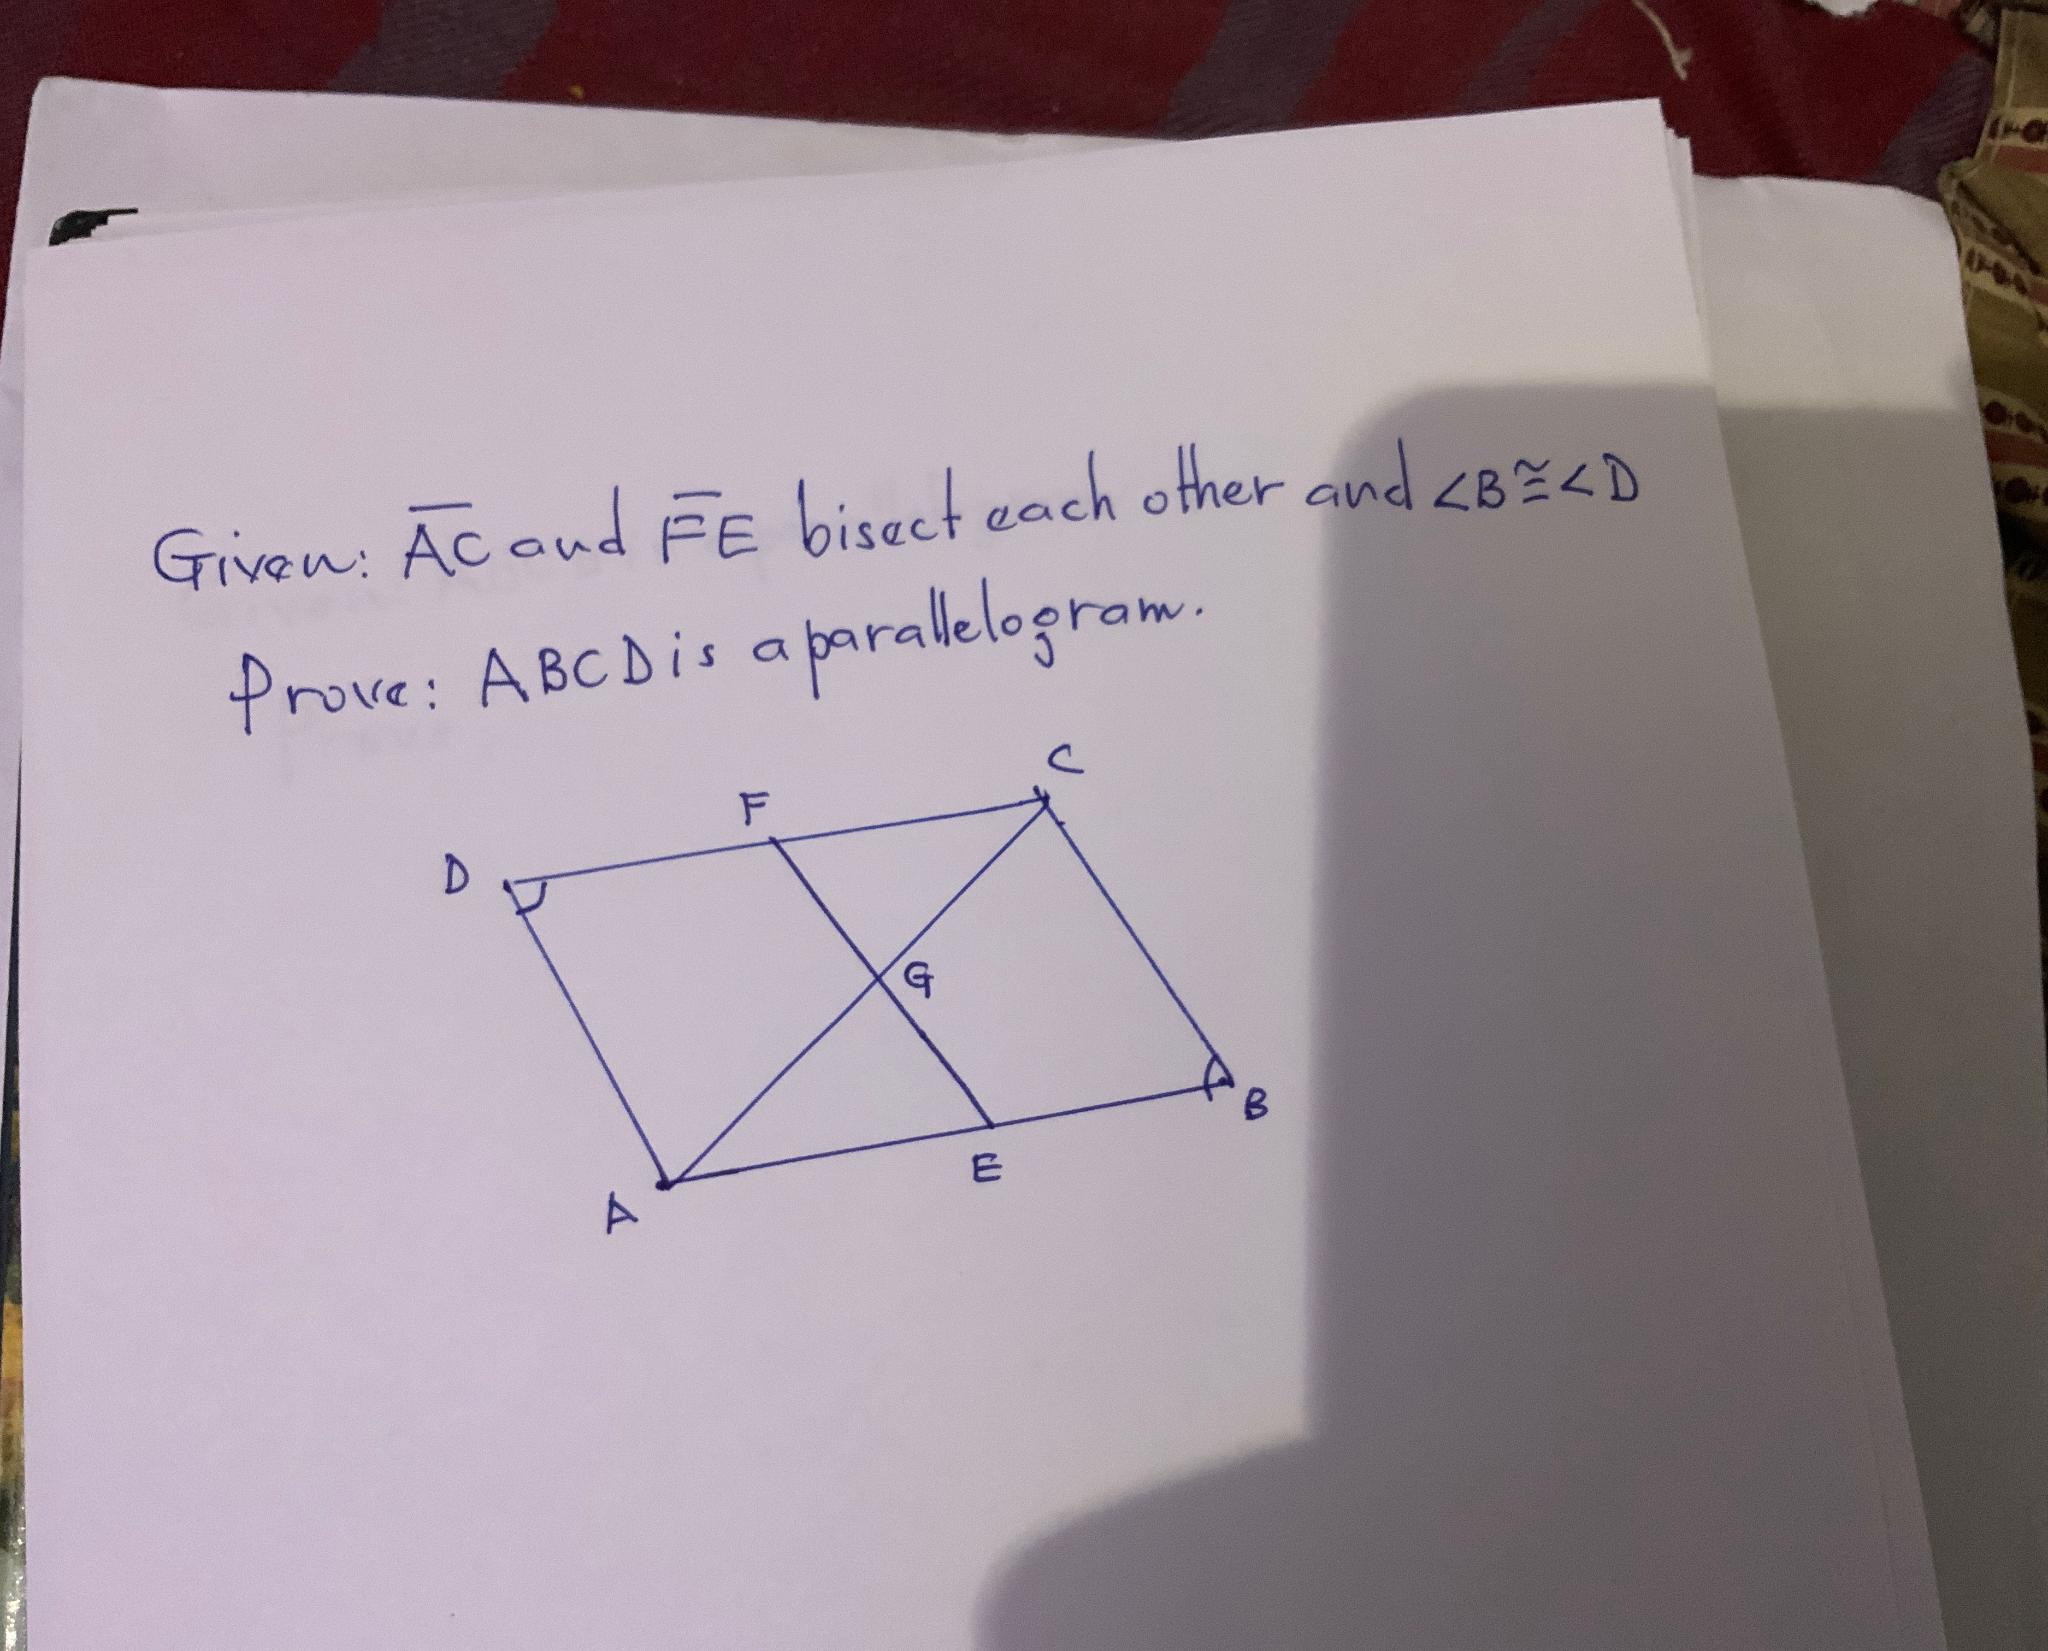 Given: A̅C̅ and F̅E̅ bisect each other and <B≅<D
Prove: ABCD is a parallelogram.
C
F
D
G
B
E
A